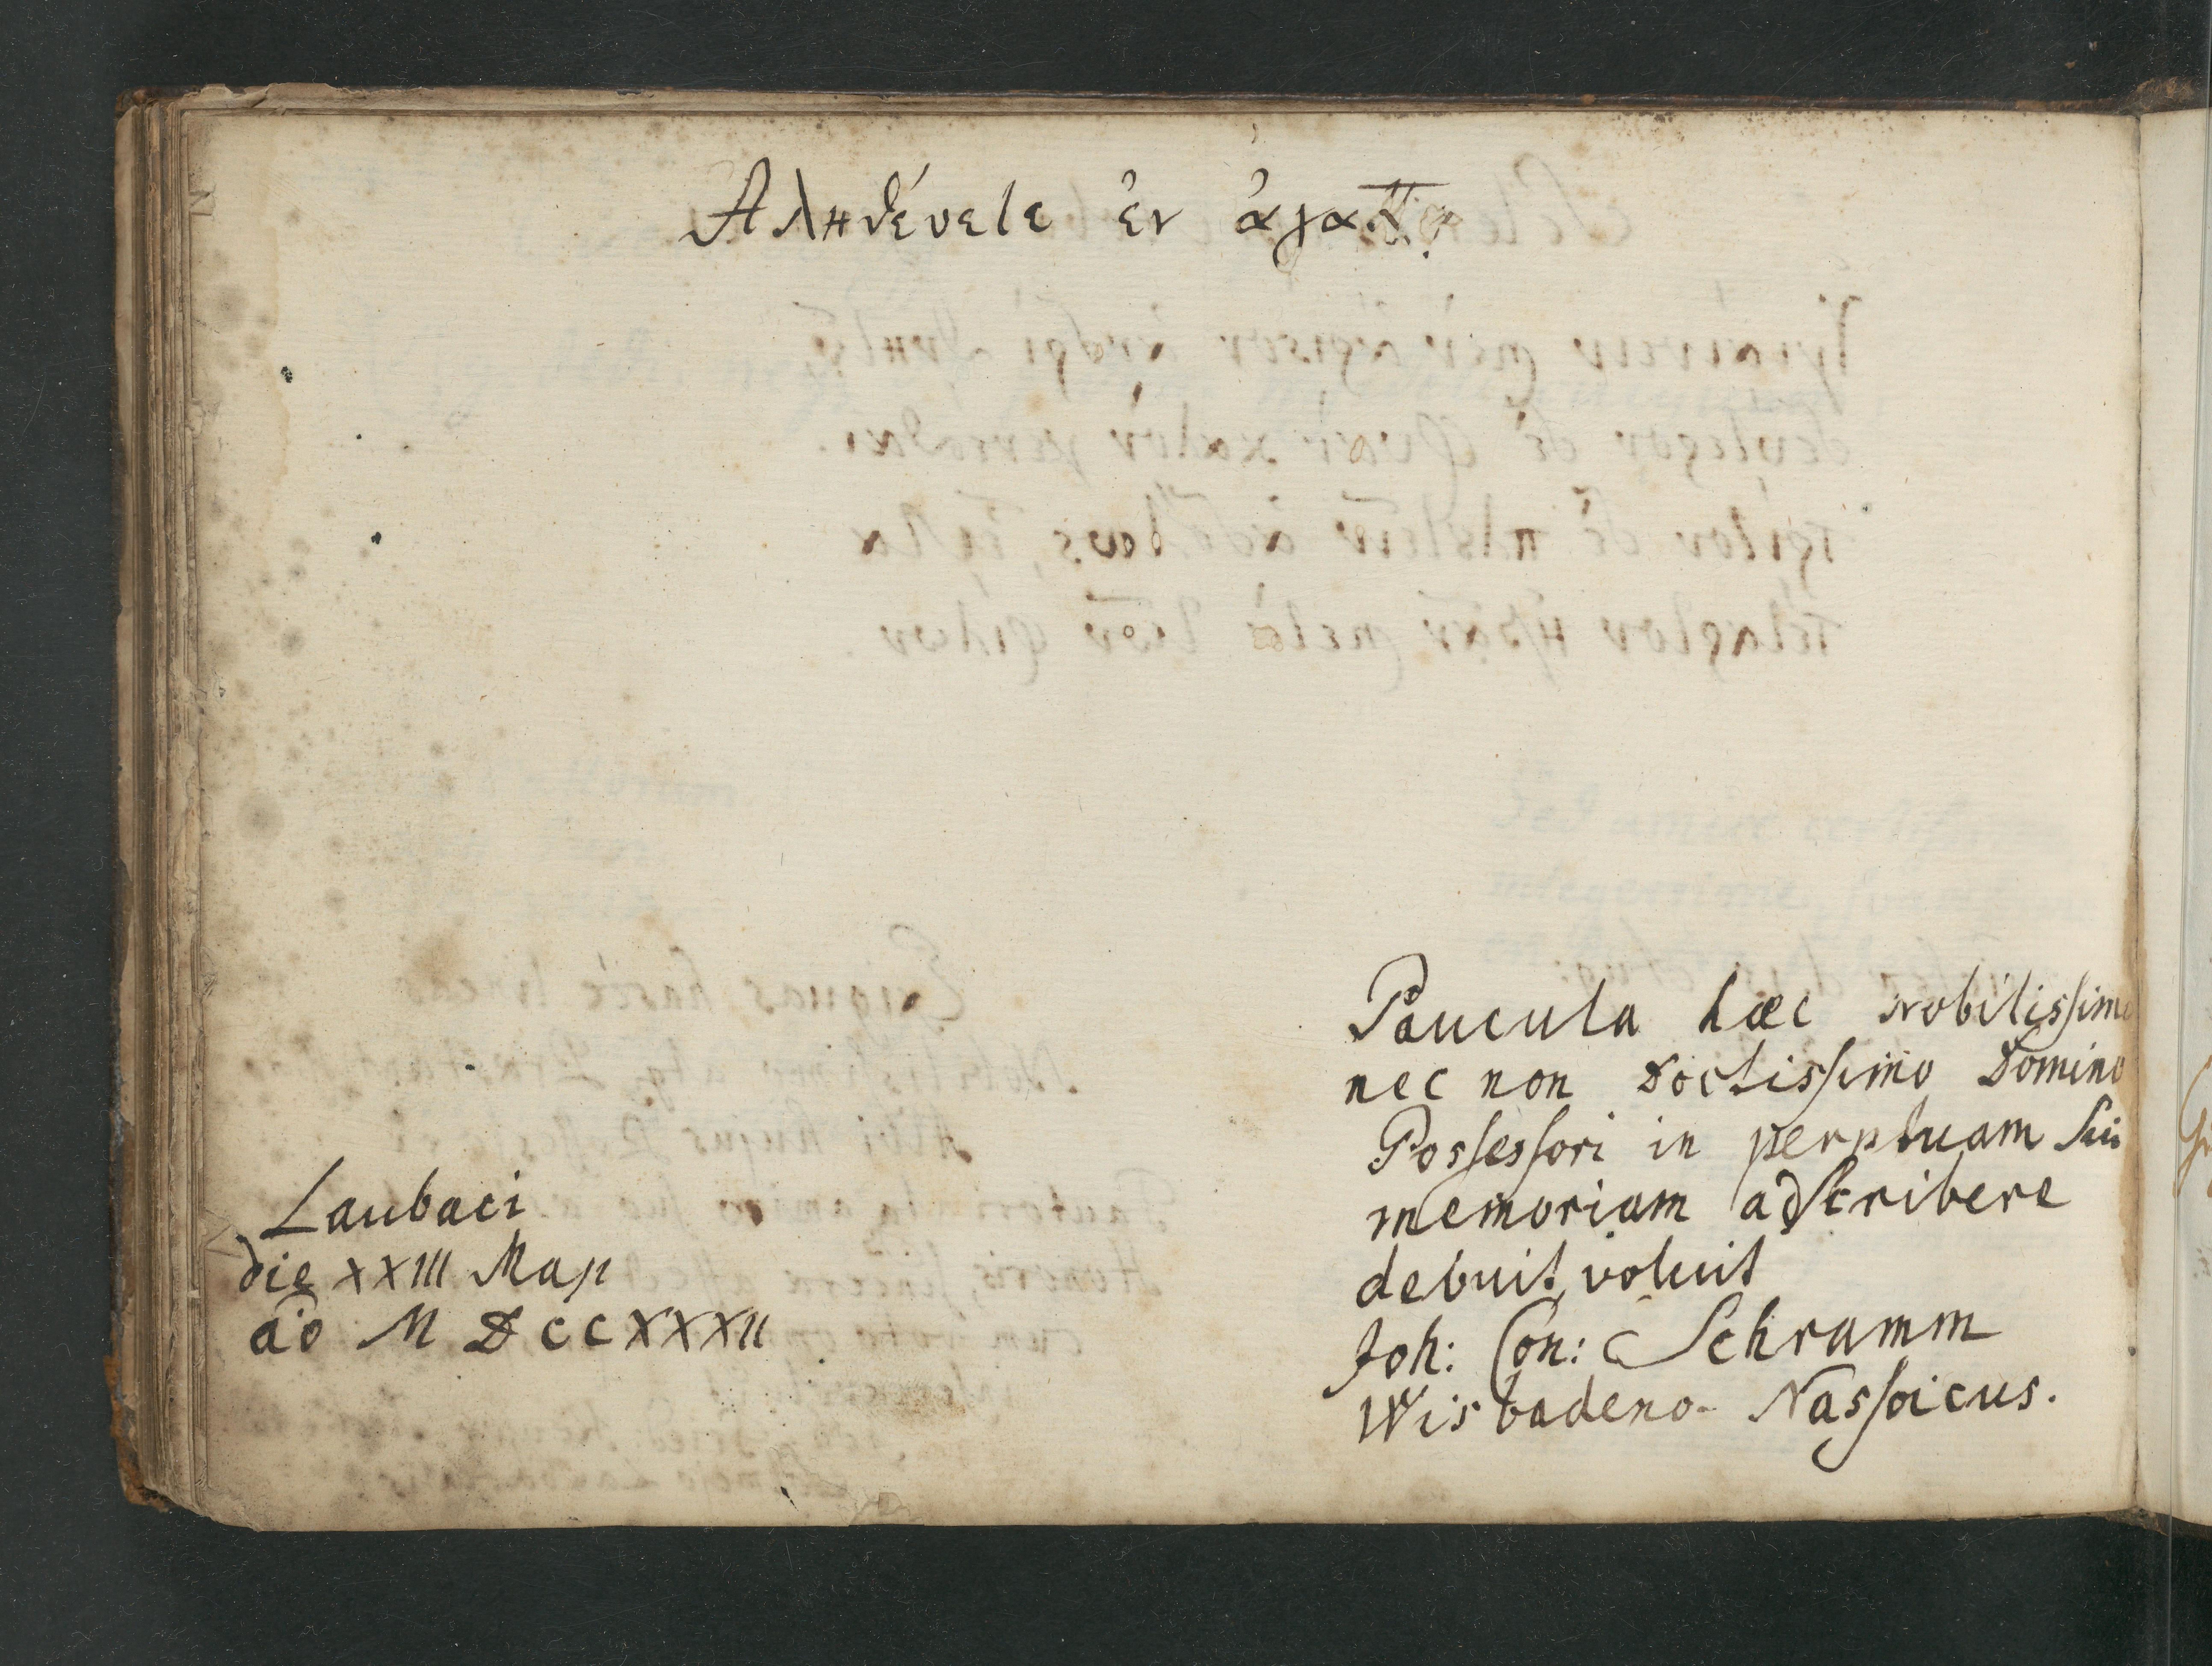 Αληθέυετε ἐν ἀγαπῃ.
Paucula hæc Nobilissimo
nec non Doctissimo Domino
Possessori in perptuam sui
memoriam adscribere
debuit, voluit
Joh: Con: Schramm
Wisbadeno- Nassoicus.
Laubaci
die XXIII Maji
aō M D CC XXXII